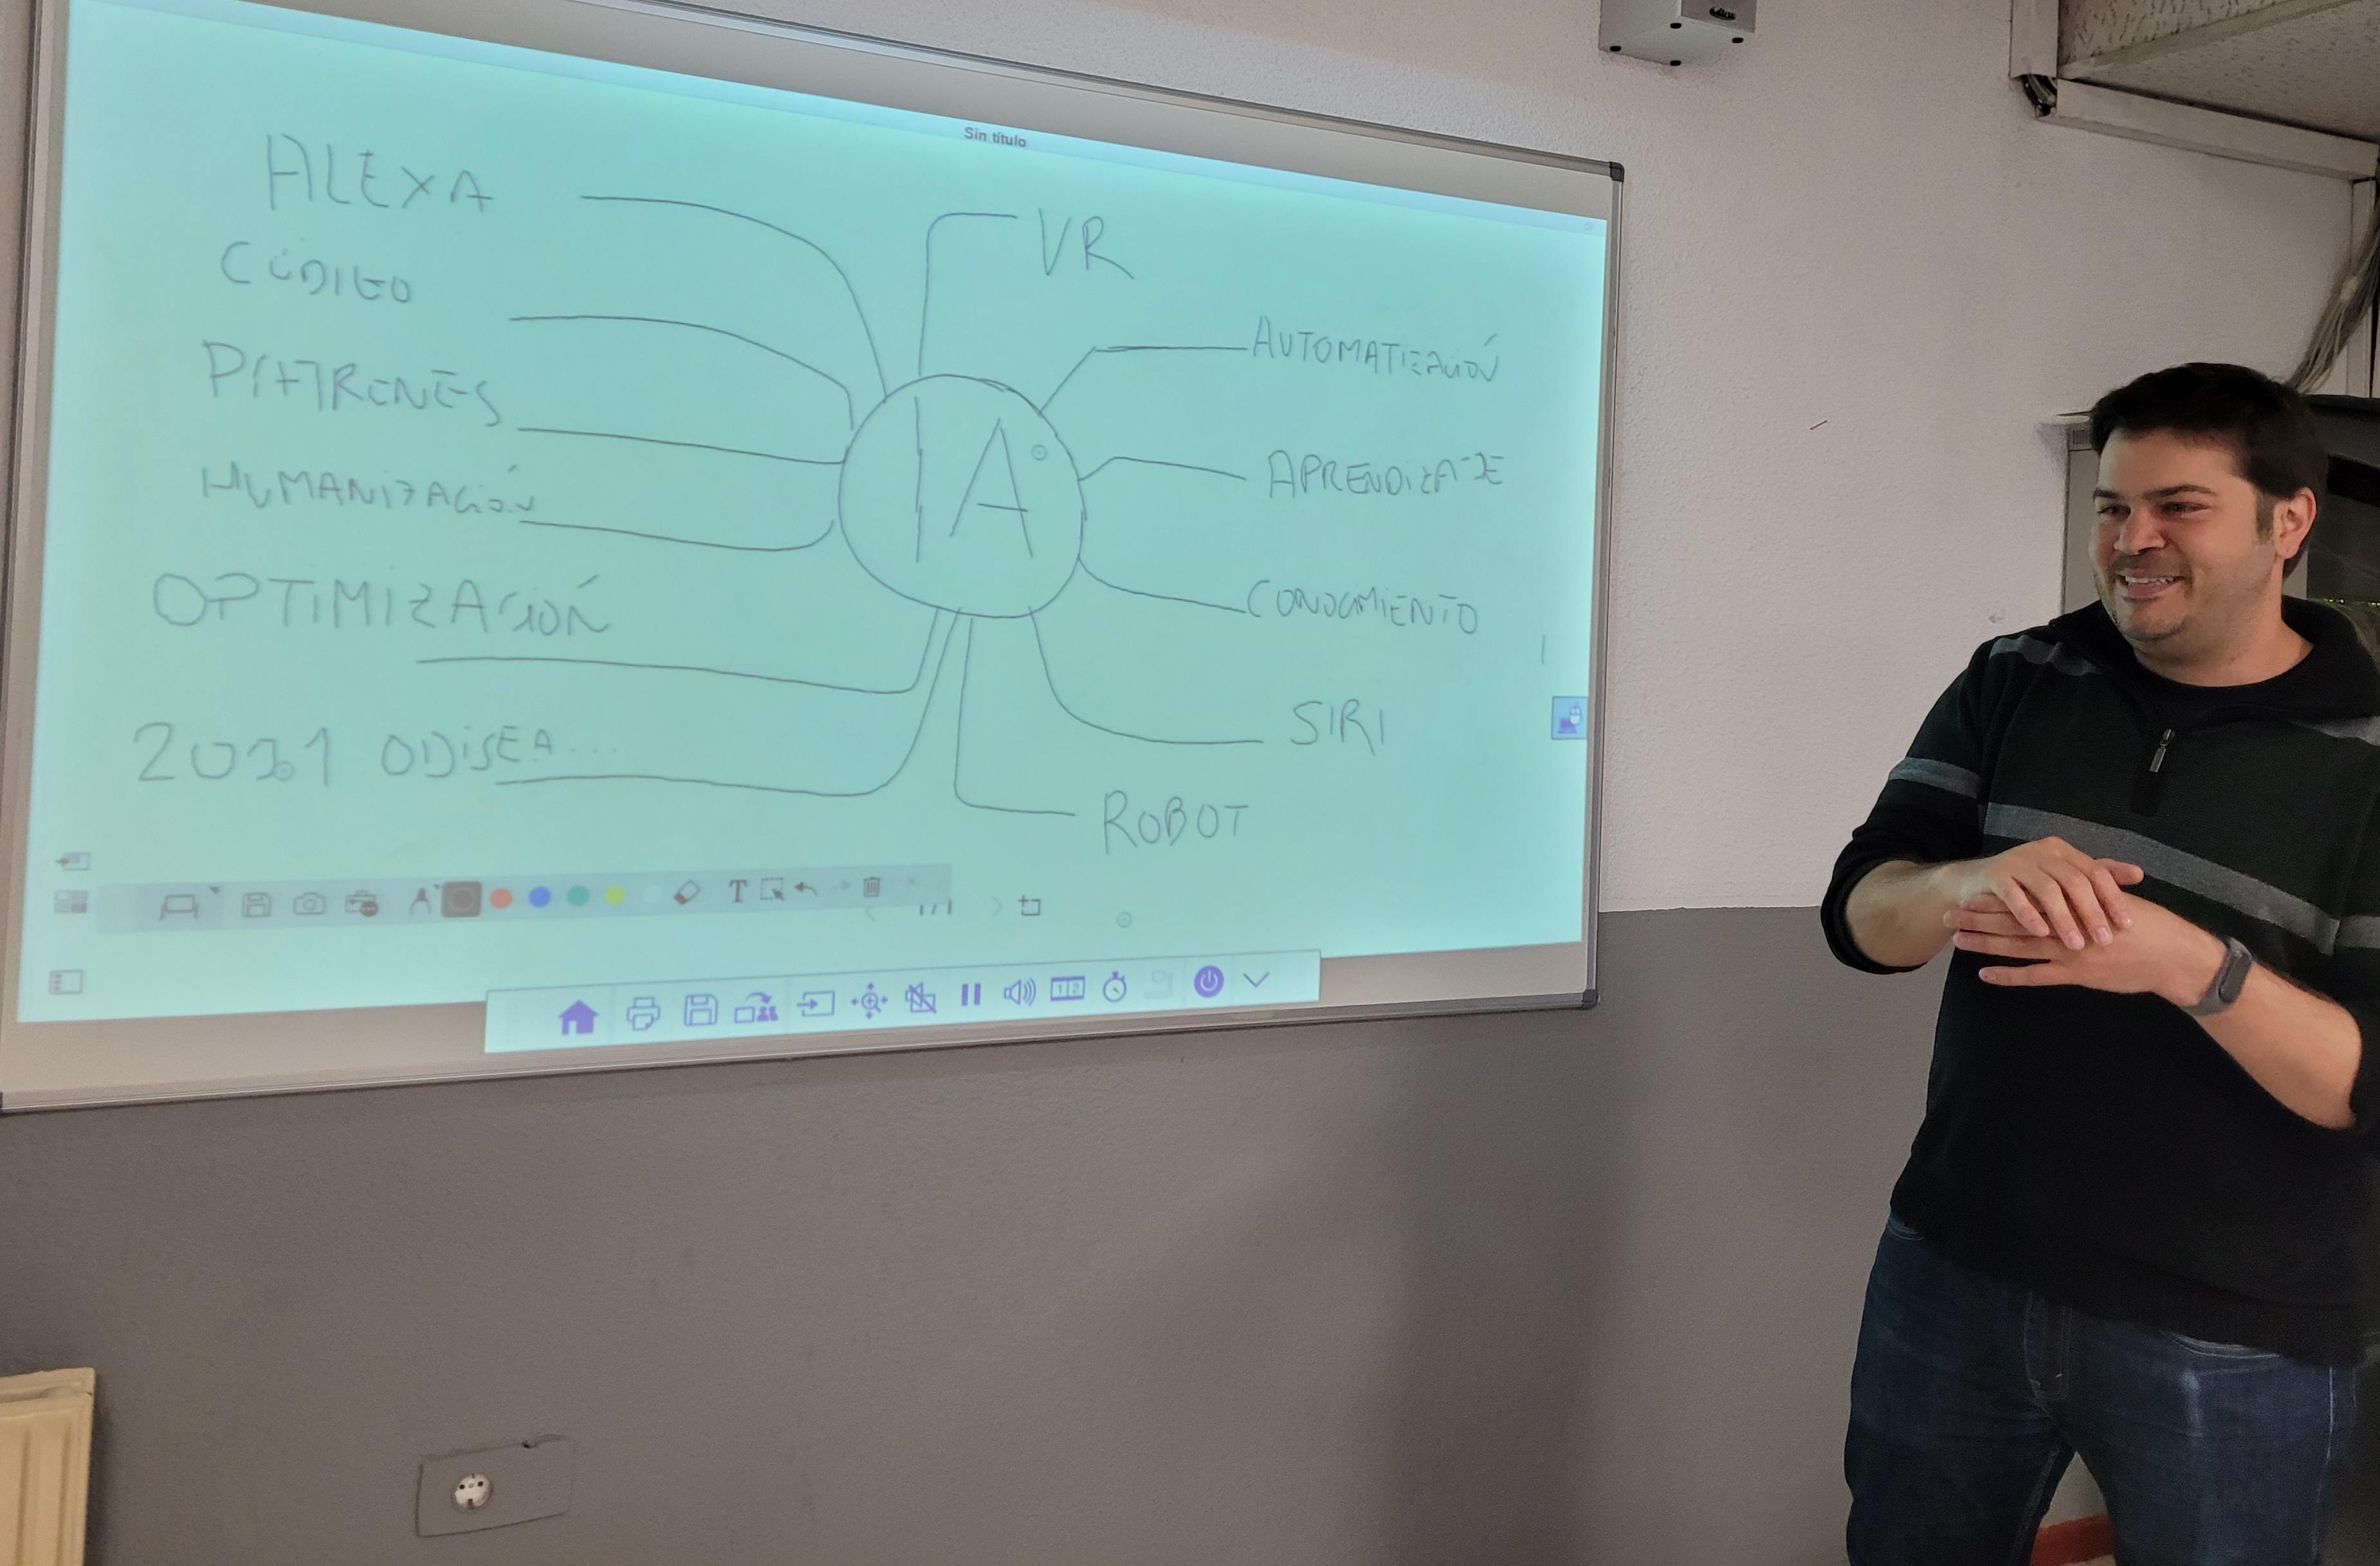 Sin título
ALEXA
CÓDIGO
PATRONES
HUMANIZACIÓN
OPTIMIZACIÓN
2001 ODISEA...
IA
VR
AUTOMATIZACIÓN
APRENDIZAJE
CONOCIMIENTO
SIRI
ROBOT
T
1/1
1 2